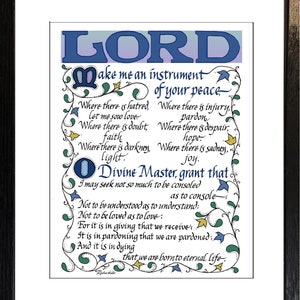 LORD
Make me an instrument
of your peace
Where there is hatred
let me sow love
Where there is injury
pardon
Where there is doubt
faith
Where there is despair
hope
Where there is darkness
light
Where there is sadness
joy.
O Divine Master, grant that
I may seek not so much to be consoled
as to console
Not to be understood as to understand
Not to be loved as to love
For it is in giving that we receive
It is in pardoning that we are pardoned
And it is in dying
that we are born to eternal life